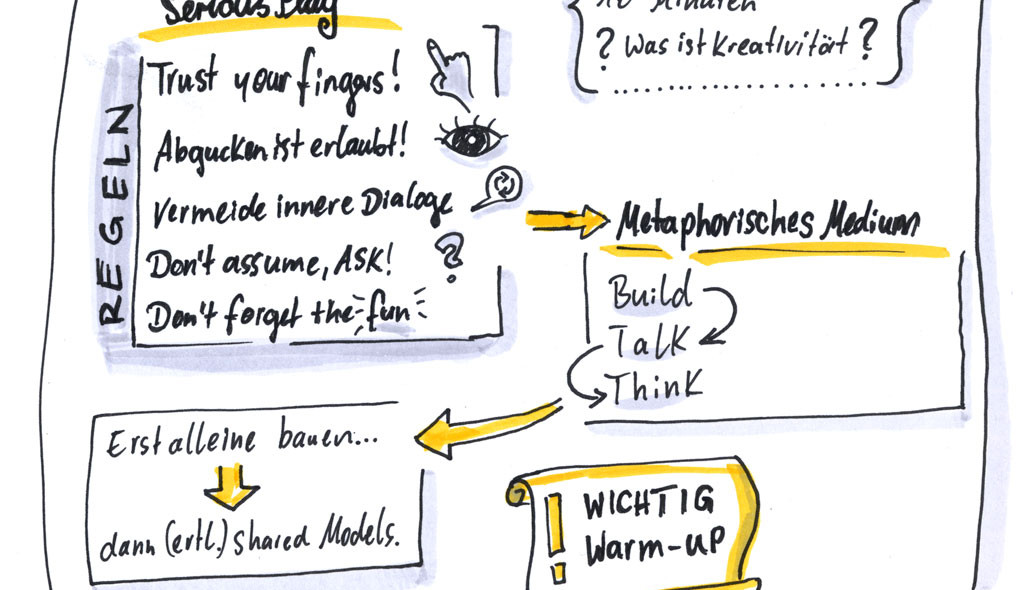 Serious Play
REGELN
Trust your fingers!
Abgucken ist erlaubt!
Vermeide innere Dialoge
Don't assume, ASK!
?
Don't forget the fun
Minuten
? Was ist Kreativität?
Metaphorisches Medium
Build
Talk
Think
Erst alleine bauen...
dann (ertl.) shared Models.
! WICHTIG
Warm-up